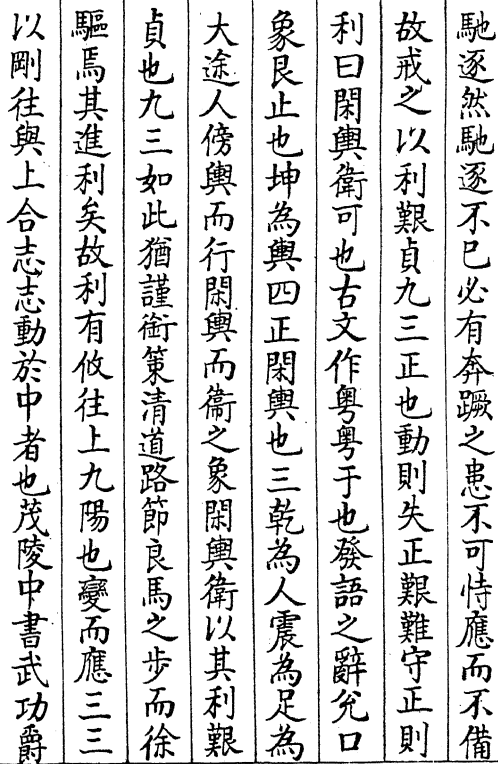 馳逐然馳逐不已必有奔蹶之患不可恃應而不備
故戒之以利艱貞九三正也動則失正艱難守正則
利曰閑輿衛可也古文作粤粤于也發語之辭兊口
象艮止也坤為輿四正閑輿也三乾為人震為足為
大途人傍輿而行閑輿而衞之象閑輿衛以其利艱
貞也九三如此猶謹銜策清道路節良馬之步而徐
驅焉其進利矣故利有攸往上九陽也變而應三三
以剛往與上合志志動於中者也茂陵中書武功爵